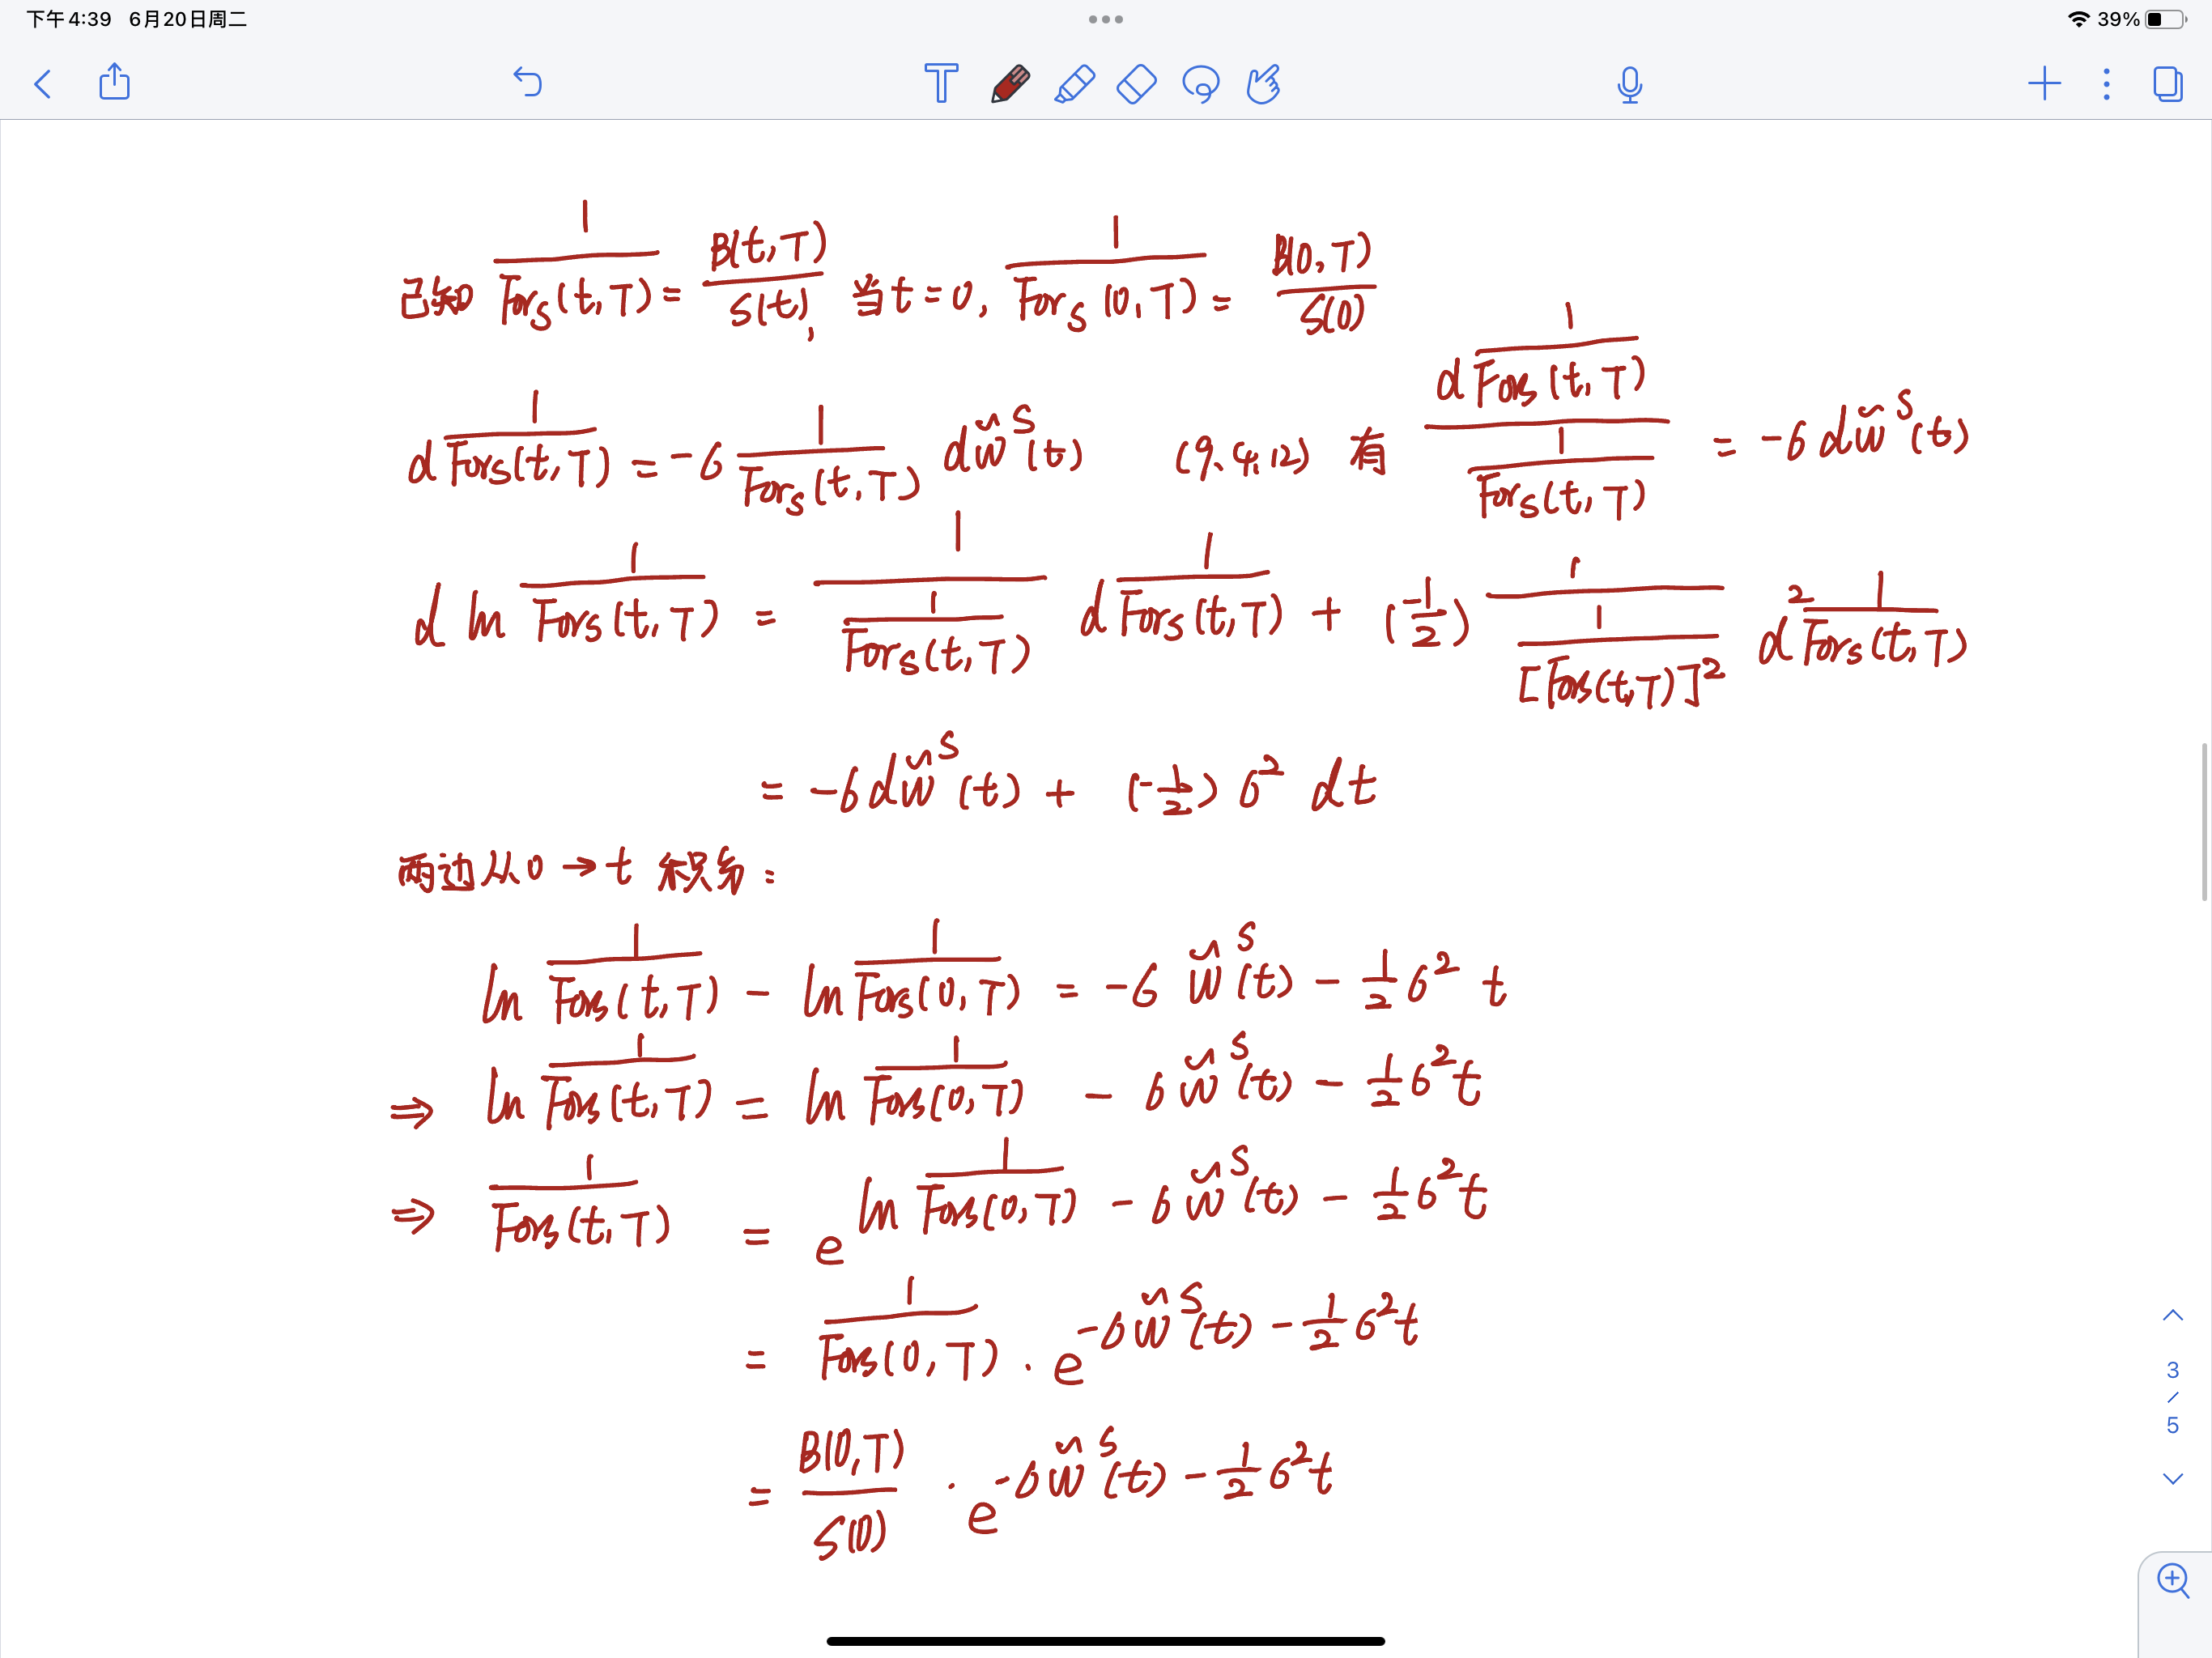 下午4:39 6月20日周二 39%
T
已知 \frac{1}{For_S(t,T)} = \frac{B(t,T)}{S(t)}, 当t=0, \frac{1}{For_S(0,T)} = \frac{B(0,T)}{S(0)}
d\frac{1}{For_S(t,T)} = -6 \frac{1}{For_S(t,T)} d\tilde{W}^S(t) (9.4.12) 有 \frac{d\frac{1}{For_S(t,T)}}{\frac{1}{For_S(t,T)}} = -6 d\tilde{W}^S(t)
d ln \frac{1}{For_S(t,T)} = \frac{1}{\frac{1}{For_S(t,T)}} d\frac{1}{For_S(t,T)} + (-\frac{1}{2}) \frac{1}{\frac{1}{[For_S(t,T)]^2}} d^2\frac{1}{For_S(t,T)}
= -6 d\tilde{W}^S(t) + (-\frac{1}{2}) 6^2 dt
两边从0→t 积分:
ln \frac{1}{For_S(t,T)} - ln \frac{1}{For_S(0,T)} = -6 \tilde{W}^S(t) - \frac{1}{2} 6^2 t
⇒ ln \frac{1}{For_S(t,T)} = ln \frac{1}{For_S(0,T)} - 6 \tilde{W}^S(t) - \frac{1}{2} 6^2 t
⇒ \frac{1}{For_S(t,T)} = e^{ln \frac{1}{For_S(0,T)} - 6 \tilde{W}^S(t) - \frac{1}{2} 6^2 t}
= \frac{1}{For_S(0,T)} · e^{-6 \tilde{W}^S(t) - \frac{1}{2} 6^2 t}
= \frac{B(0,T)}{S(0)} · e^{-6 \tilde{W}^S(t) - \frac{1}{2} 6^2 t}
3
/
5